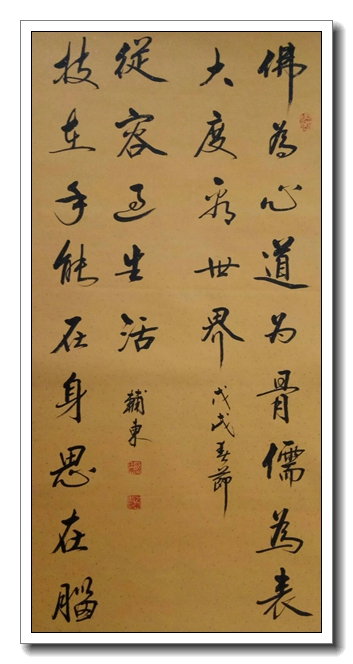 佛為心道为骨儒為表
大度看世界 戊戌春節
技在手能在身思在腦
從容過生活 東